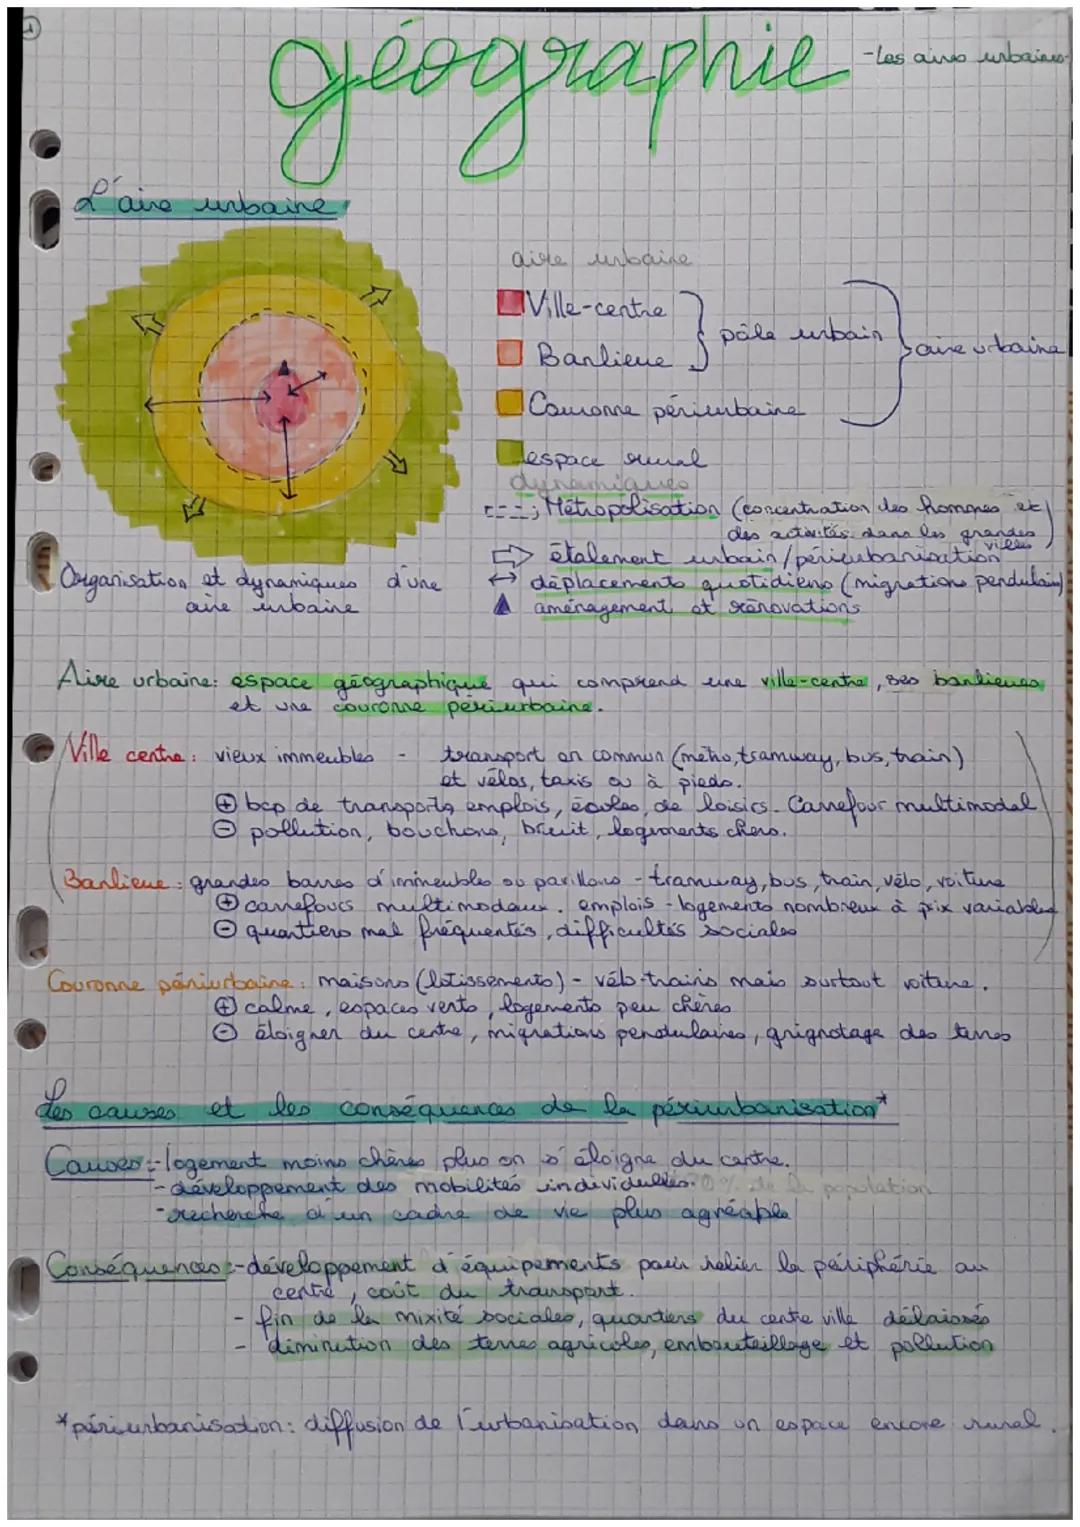 1
géographie
-Les aires urbaines-
L'aire urbaine
aire urbaine
Ville-centre
pôle urbain
Banlieue
aire urbaine
Couronne périurbaine
espace rural
dynamiques
Métropolisation (concentration des hommes et
des activités dans les grandes
villes)
étalement urbain/périurbanisation
déplacements quotidiens (migrations pendulaires)
aménagement et rénovations
Organisation et dynamiques d'une
aire urbaine
Aire urbaine: espace géographique qui comprend une ville-centre, ses banlieues
et une couronne périurbaine.
Ville centre: vieux immeubles - transport en commun (métro, tramway, bus, train)
et vélos, taxis ou à pieds.
+ bcp de transports, emplois, écoles, de loisirs. Carrefour multimodal
- pollution, bouchons, bruit, logements chers.
Banlieue: grandes barres d'immeubles ou pavillons - tramway, bus, train, vélo, voiture
+ carrefours multimodaux. emplois - logements nombreux à prix variables
- quartiers mal fréquentés, difficultés sociales
Couronne périurbaine: maisons (lotissements) - vélo-trains mais surtout voiture.
+ calme, espaces verts, logements peu chères
- éloigner du centre, migrations pendulaires, grignotage des terres
Les causes et les conséquences de la périurbanisation*
Causes:-logement moins chères plus on s'éloigne du centre.
-développement des mobilités individuelles. 0% de la population
-recherche d'un cadre de vie plus agréable
Conséquences:-développement d'équipements pour relier la périphérie au
centre, coût du transport.
- fin de la mixité sociales, quartiers du centre ville délaissés
- diminution des terres agricoles, embouteillage et pollution
*périurbanisation: diffusion de l'urbanisation dans un espace encore rural.